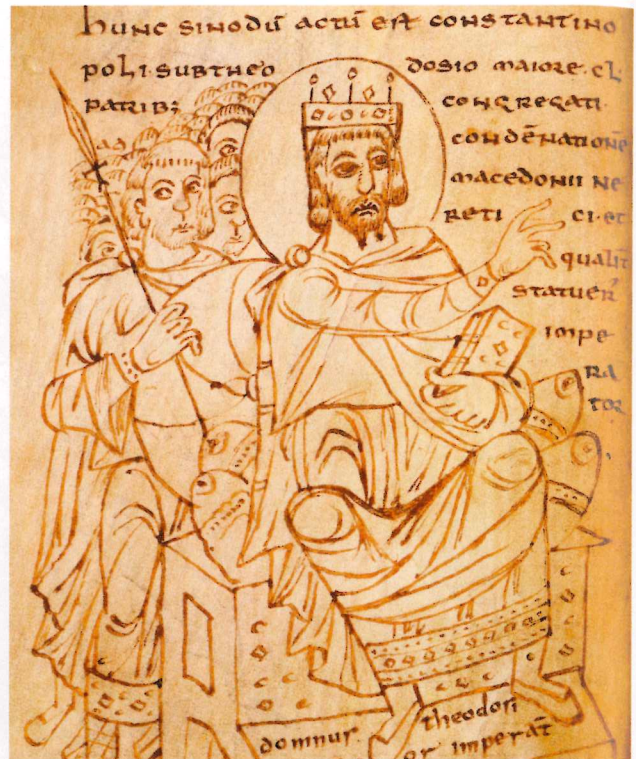 hunc sinodū actū est constantino
poli·subtheo dosio maiore·cl
patrib; congregati
condēnationē
macedonii he
reti ci·et
qualit
statuer
impe
ra
tor
domnus· theodosi
or imperat̄